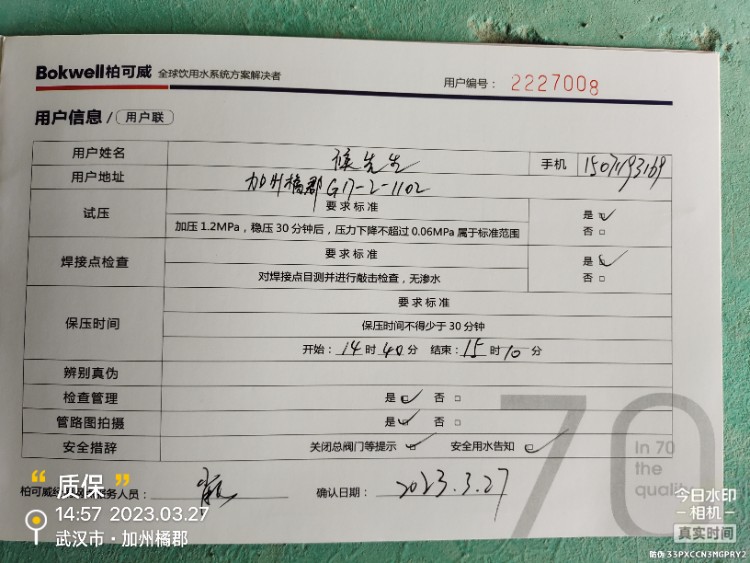 Bokwell柏可威 全球饮用水系统方案解决者
用户编号： 2227008
用户信息 / 用户联
用户姓名 侯先生 手机 15071193169
用户地址 加州橘郡G17-2-1102
试压 要求标准 是
加压1.2MPa，稳压30分钟后，压力下降不超过0.06MPa属于标准范围 否
焊接点检查 要求标准 是
对焊接点目测并进行敲击检查，无渗水 否
保压时间 要求标准
保压时间不得少于30分钟
开始：14时40分 结束：15时10分
辨别真伪
检查管理 是 否
管路图拍摄 是 否
安全措辞 关闭总阀门等提示 安全用水告知
柏可威 务人员： 确认日期： 2023.3.27
70
In 70
the
quality
“质保”
14:57 2023.03.27
武汉市·加州橘郡
今日水印
相机
真实时间
防伪 33PXCCN3MGPRY2